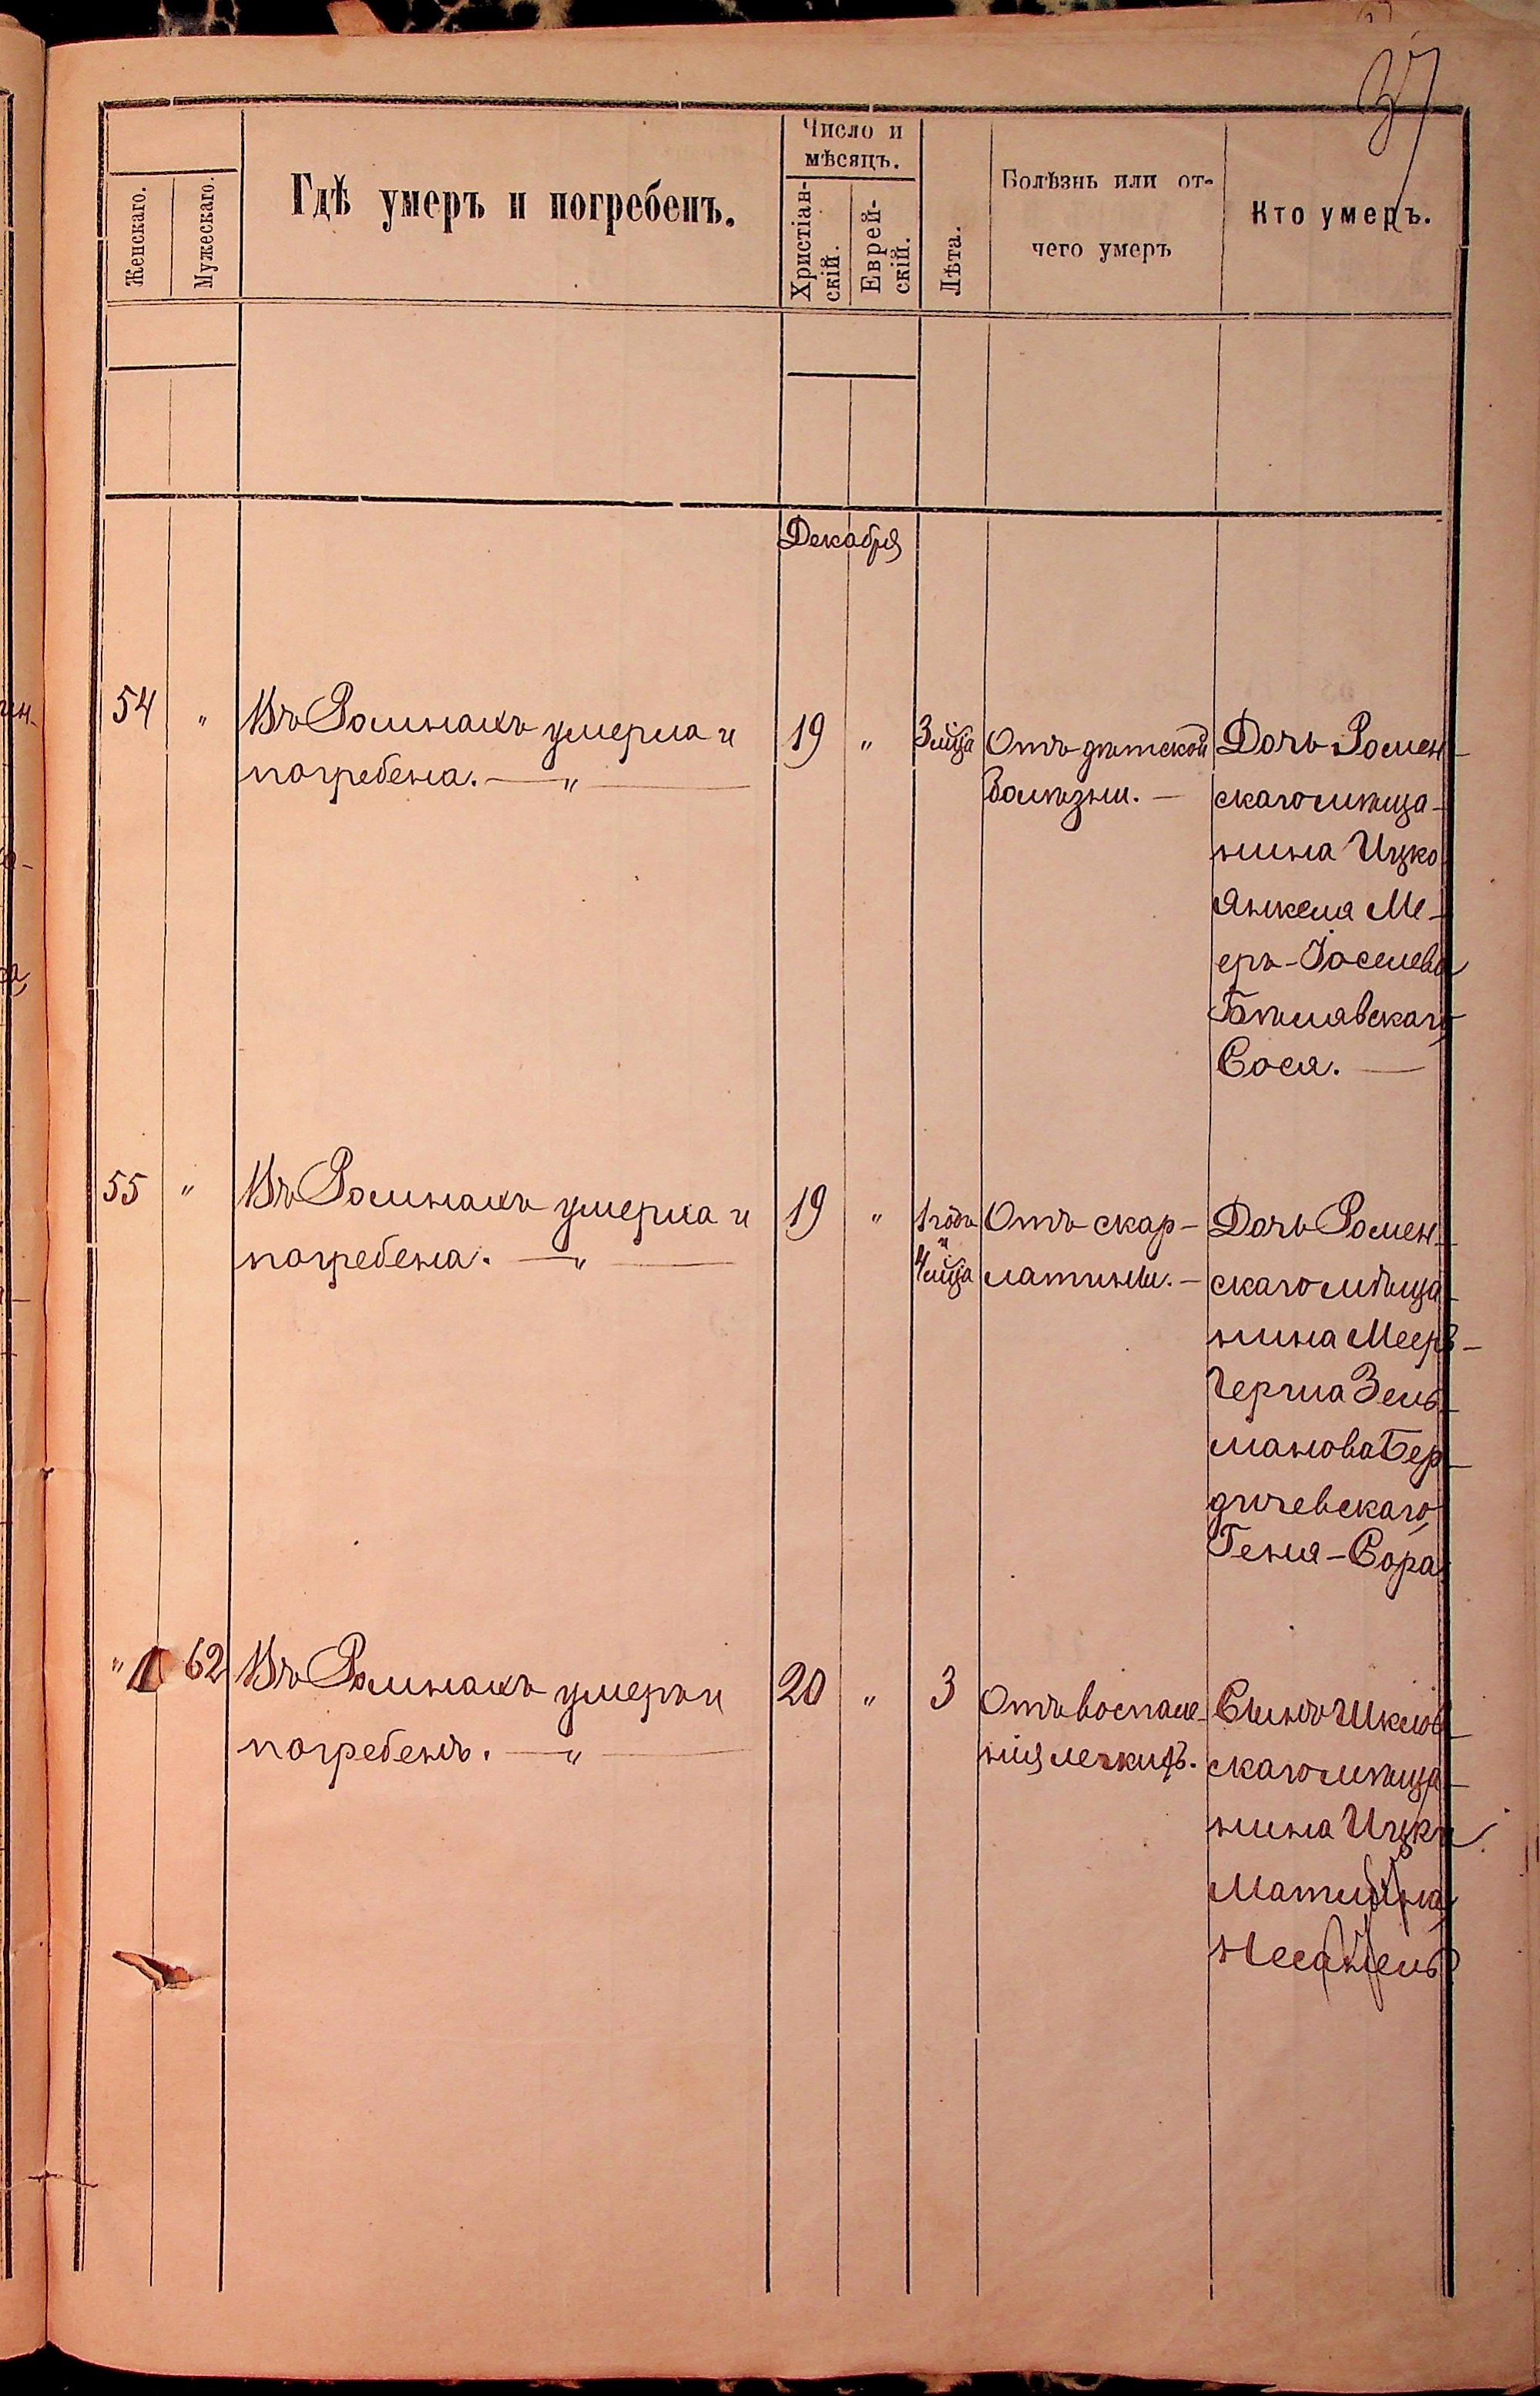 37
Женскаго.
Мужескаго.
Гдѣ умеръ и погребенъ.
Число и
мѣсяцъ.
Христіан-
скій.
Еврей-
скій.
Лѣта.
Болѣзнь или от-
чего умеръ
Кто умеръ.
Декабря
54 „ Въ Ромнахъ умерла и
погребена. — „ —
19 „ 3 мѣца
Отъ дѣтской
болѣзни. —
Дочь Ромен-
скаго мѣща-
нина Ицко
Янкеля Ме-
еръ-Іоселева
Бѣлявскаго
Сося. —
55 „ Въ Ромнахъ умерла и
погребена. — „ —
19 „ 1 годъ
и
4 мѣца
Отъ скар-
латины. —
Дочь Ромен-
скаго мѣща-
нина Мееръ-
Герша Зель-
манова Бер-
дичевскаго
Геня-Сора.
„ 62 Въ Ромнахъ умеръ и
погребенъ. — „ —
20 „ 3
Отъ воспале-
нія легкихъ.
Сынъ Шклов-
скаго мѣща-
нина Ицки